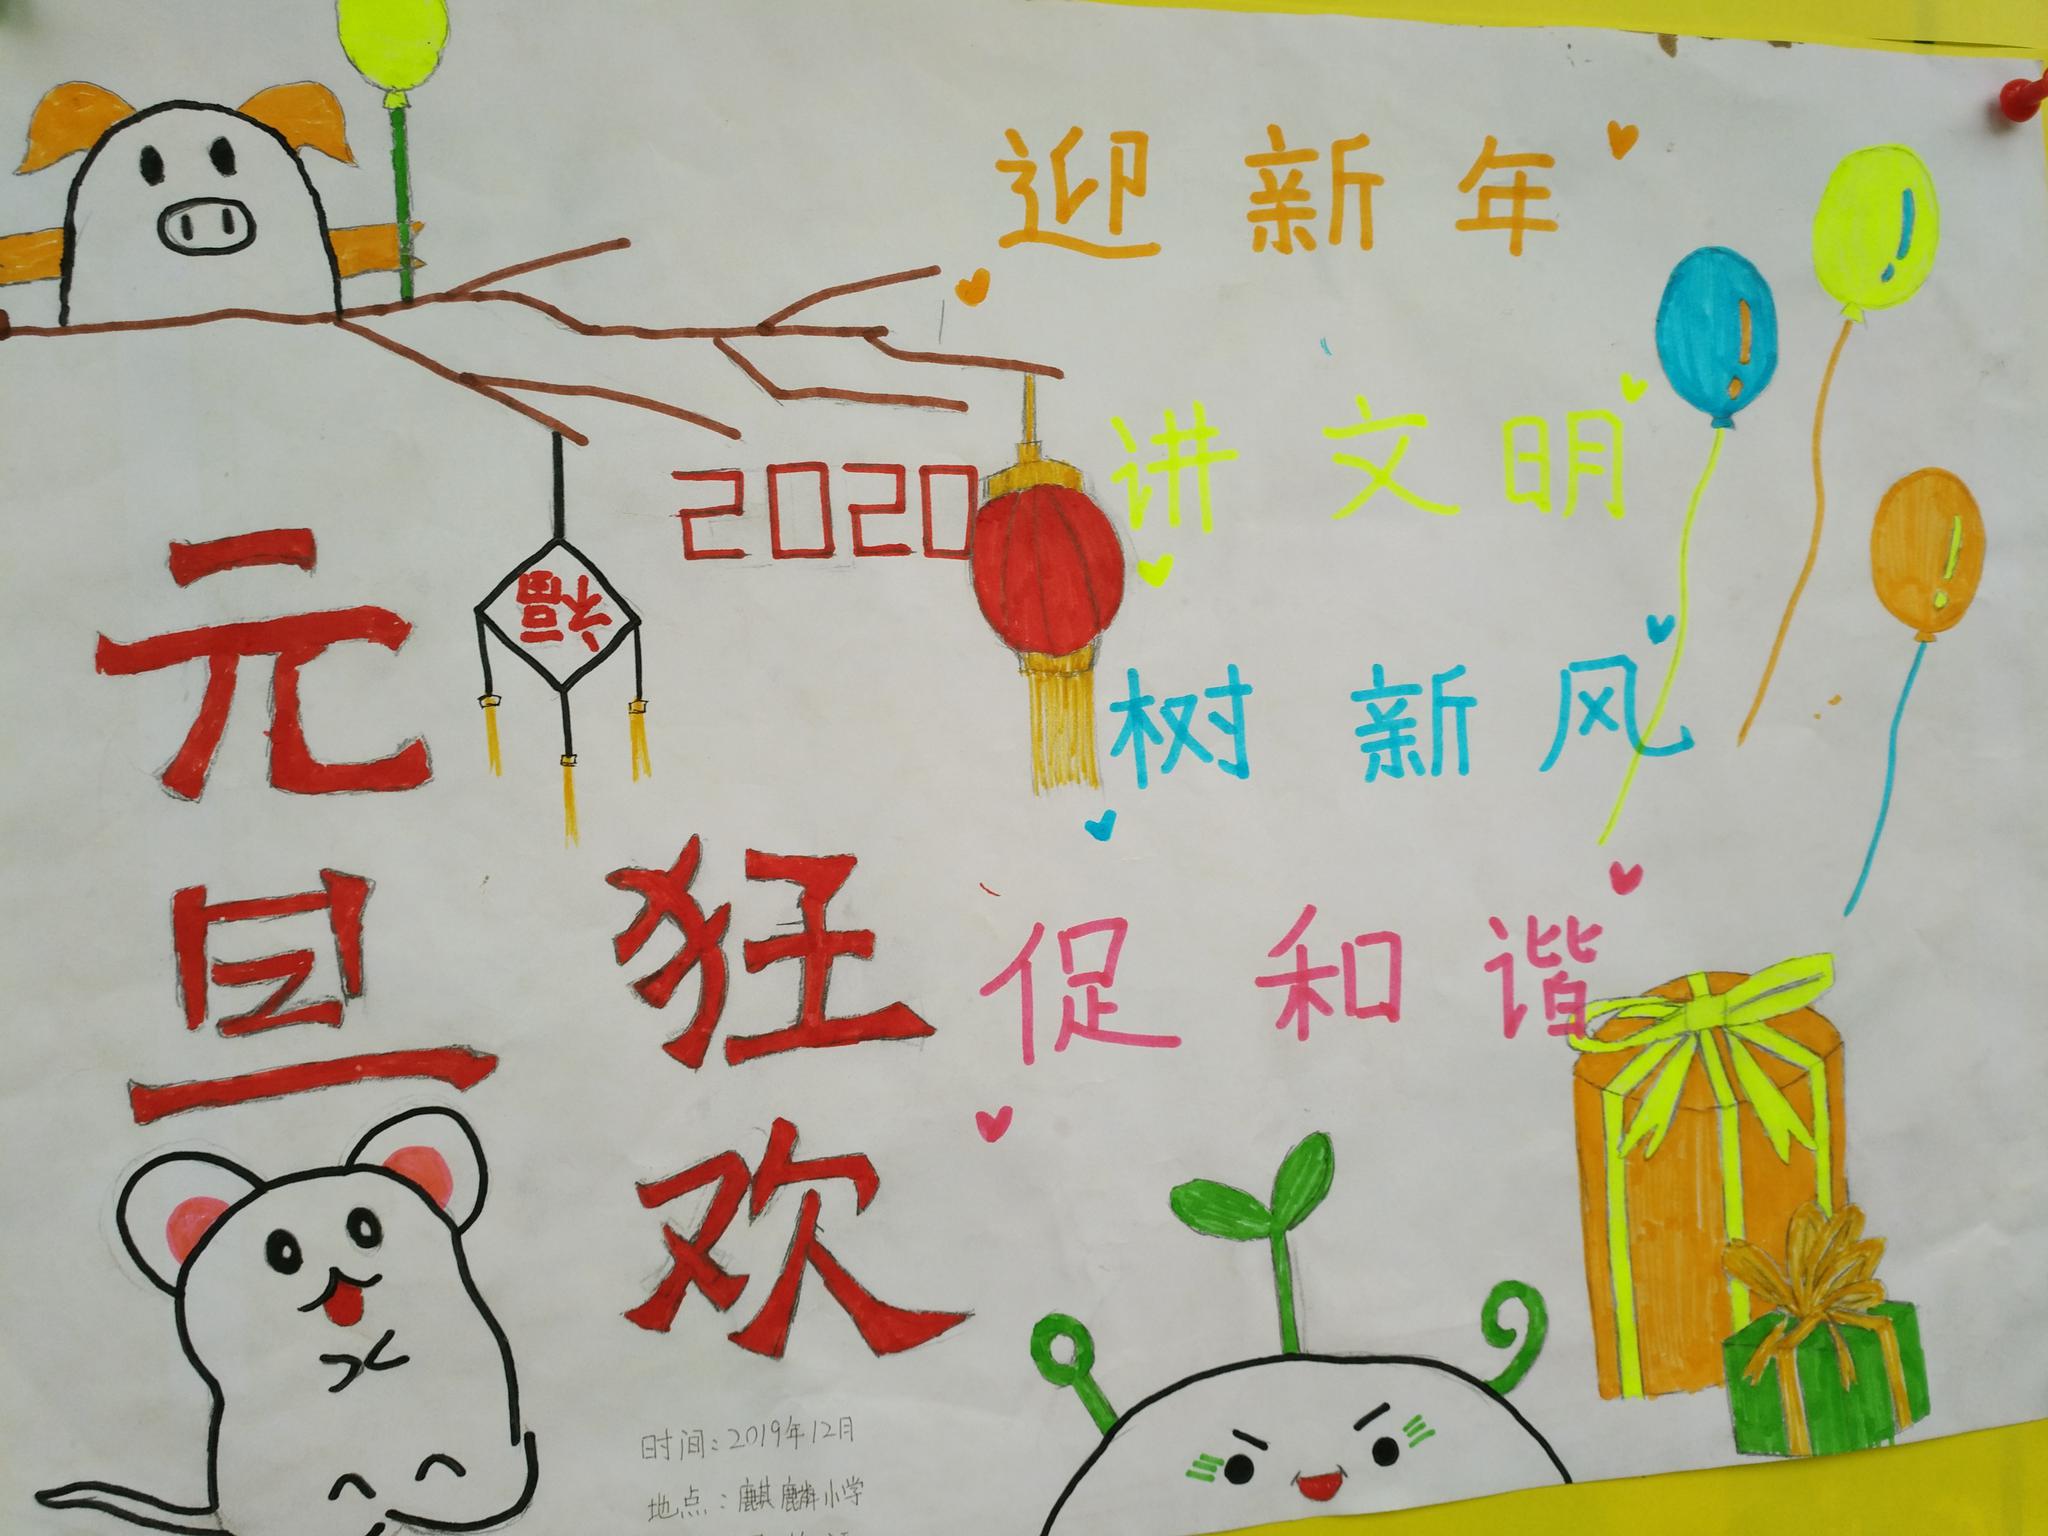 迎新年
讲文明
2020
福
树新风
元旦
狂欢
促和谐
时间：2019年12月
地点：麒麟小学